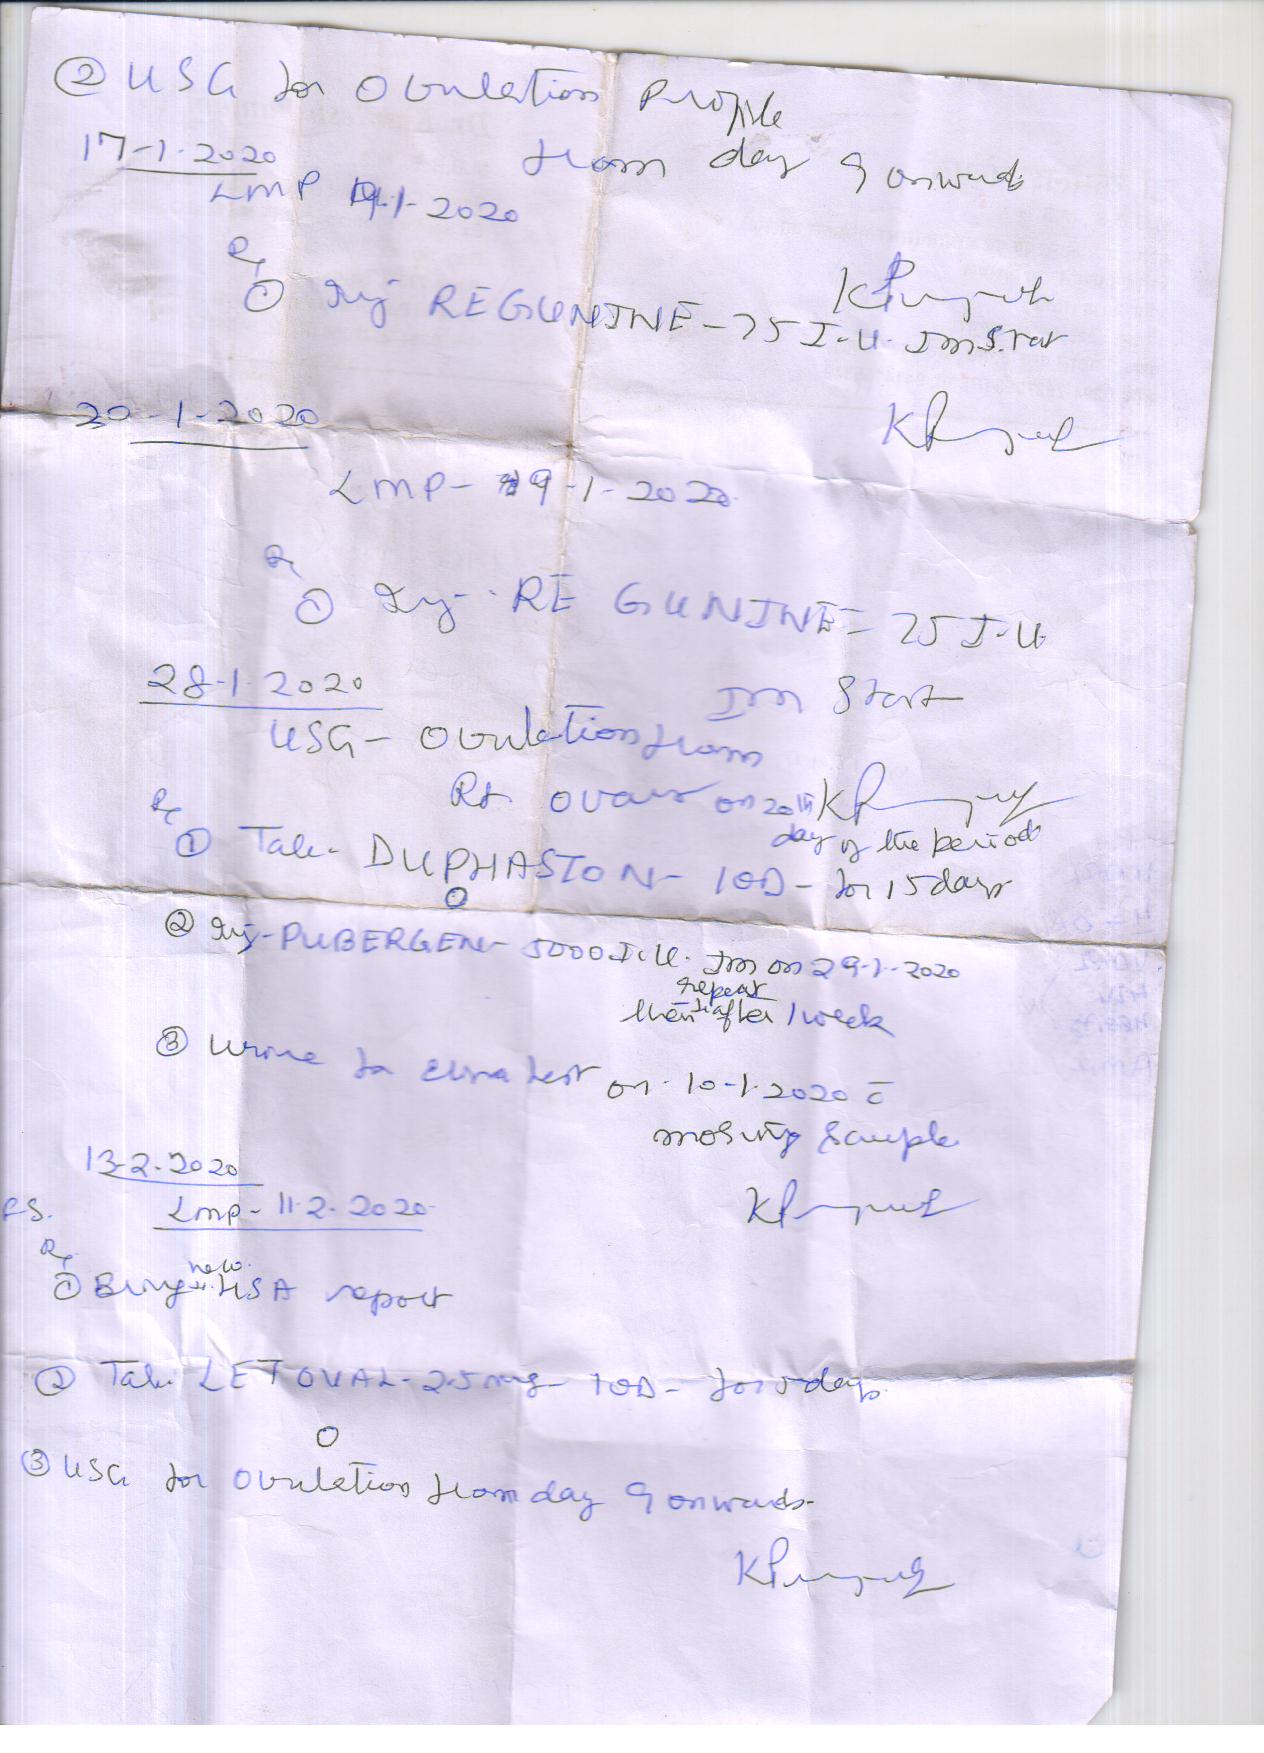 ② USG for Ovulation Profile
from day 9 onwards
17-1-2020
LMP 9-1-2020
Rx
① Inj REGUNINE - 75 I.U. Im Stat
20-1-2020
LMP - 9-1-2020
Rx
① Inj - REGUNINE = 75 I.U.
Im Start
28-1-2020
USG - Ovulation from
Rt. ovary on 20th
day of the period
Rx
① Take - DUPHASTON - 1OD - for 15 days
② Inj - PUBERGEN - 5000 I.U. Im on 29-1-2020
repeat
then after 1 week
③ Urine for test on 10-1-2020 c̄
morning Sample
13-2-2020
LMP - 11-2-2020
Rx
new
① Bring HSA report
② Take LETOVAL - 2.5 mg - 1OD - for 5 days
③ USG for Ovulation from day 9 onwards -